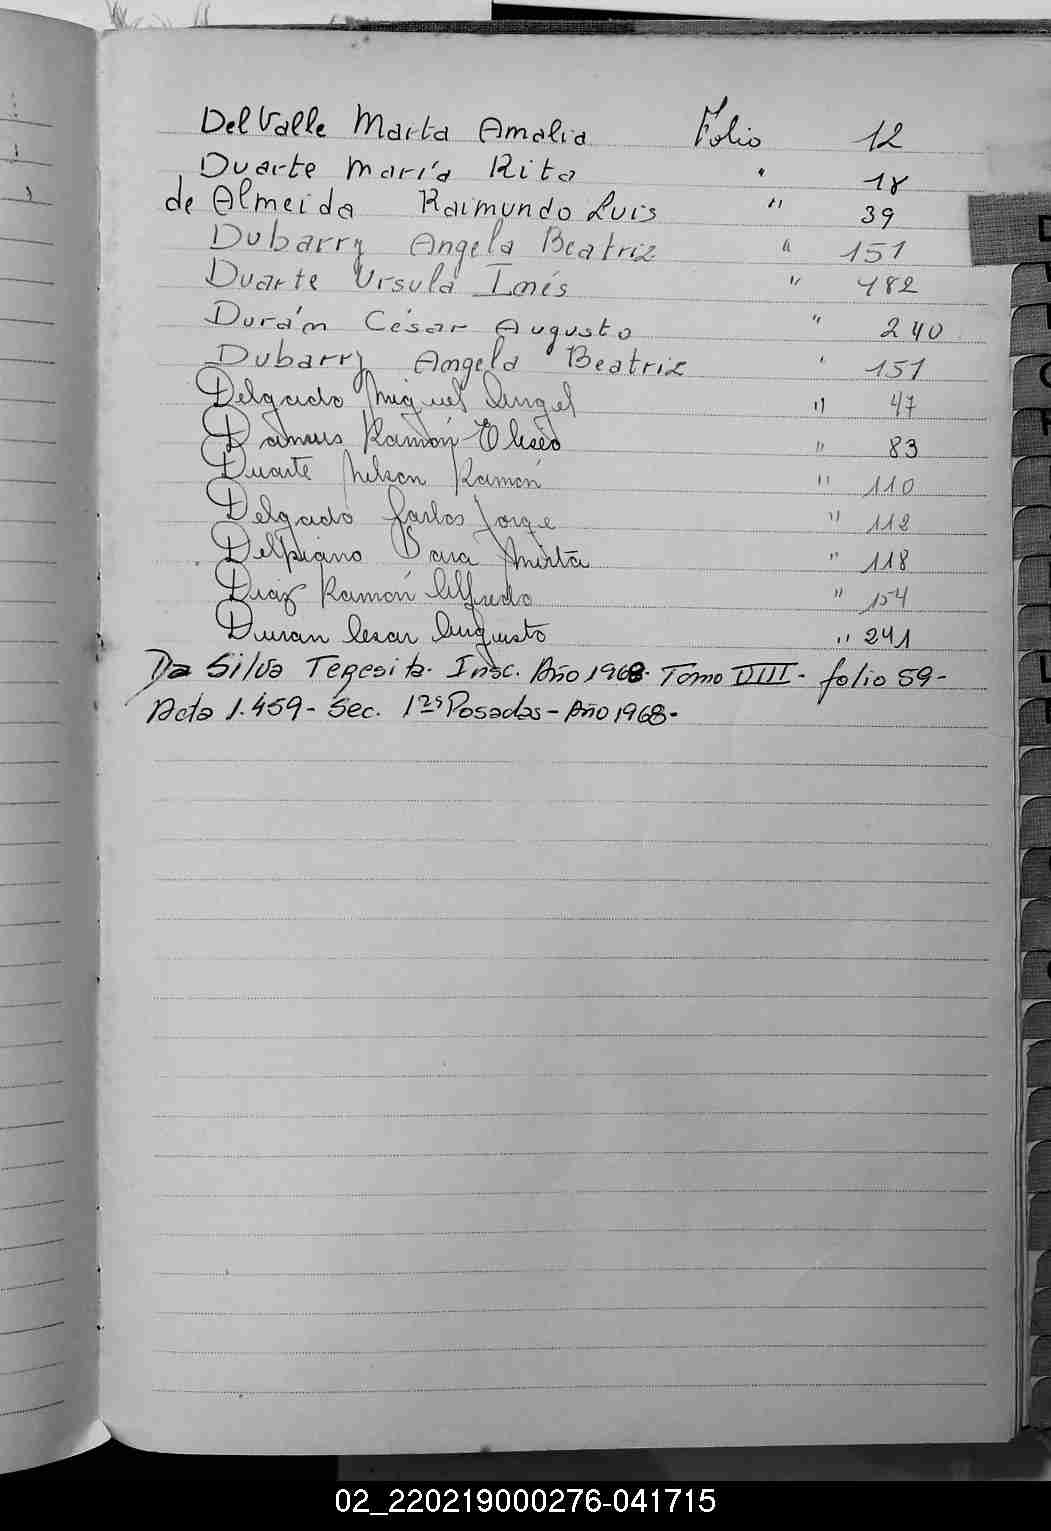 Del Valle Marta Amalia Folio 12
Duarte María Rita " 18
de Almeida Raimundo Luis " 39
Dubarry Angela Beatriz " 151
Duarte Ursula Inés " 482
Durán César Augusto " 240
Dubarry Angela Beatriz " 151
Delgado Miguel Angel " 47
Damus Ramón Eliseo " 83
Duarte Nelson Ramón " 110
Delgado Carlos Jorge " 112
Delpiano Mirta " 118
Diaz Ramón Alfredo " 154
Duran Cesar Augusto " 241
Da Silva Teresita. Insc. Año 1968. Tomo VIII - folio 59-
Acta 1.459- Sec. 1ra Posadas - Año 1968-
D
L
02_220219000276-041715